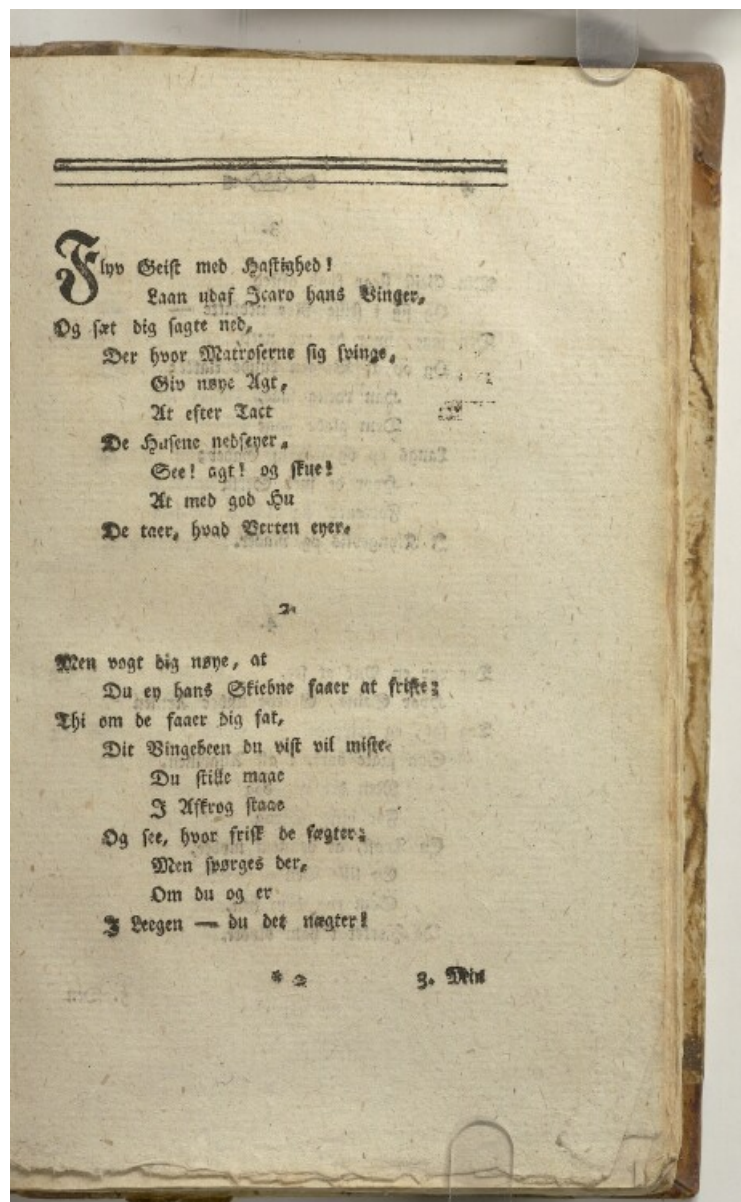 Flyv Geist med Hastighed!
Laan udaf Icaro hans Vinger,
Og sæt dig sagte ned,
Der hvor Matroserne sig svinge,
Giv nøye Agt,
At efter Tact
De Husene nedseyer,
See! agt! og skue!
At med god Hu
De taer, hvad Verten eyer.
2.
Men vogt dig nøye, at
Du ey hans Skiebne faaer at friste;
Thi om de faaer dig fat,
Dit Vingebeen du vist vil miste.
Du stille maae
I Afkrog staae
Og see, hvor frisk de fægter;
Men spørges der,
Om du og er
I Leegen — du det nægter!
* 2 3. Min